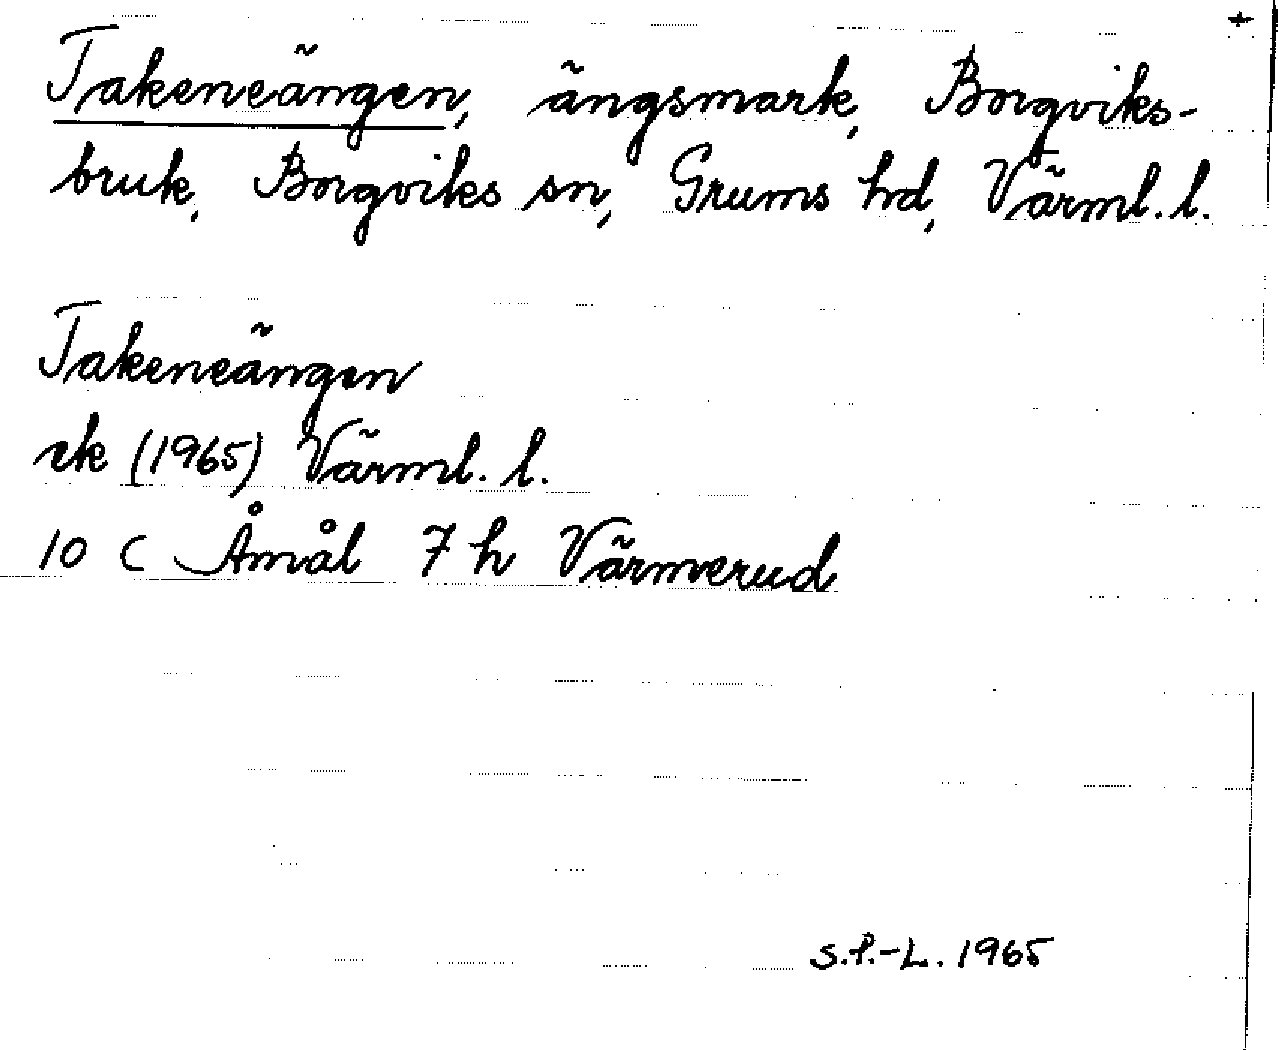 +
Takeneängen, ängsmark, Borgviks-
bruk, Borgviks sn, Grums hd, Värml. l.
Takeneängen
ek (1965) Värml. l.
10 C Åmål 7 h Värmerud
S.P.-L. 1965